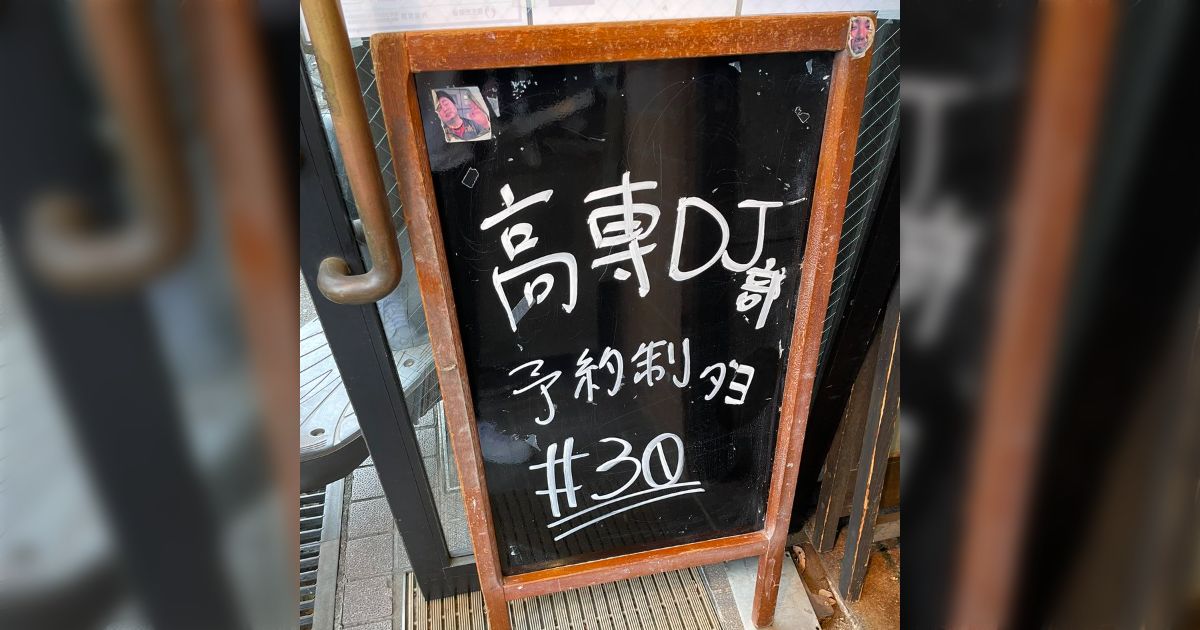 高専DJ部
予約制ダヨ
#30